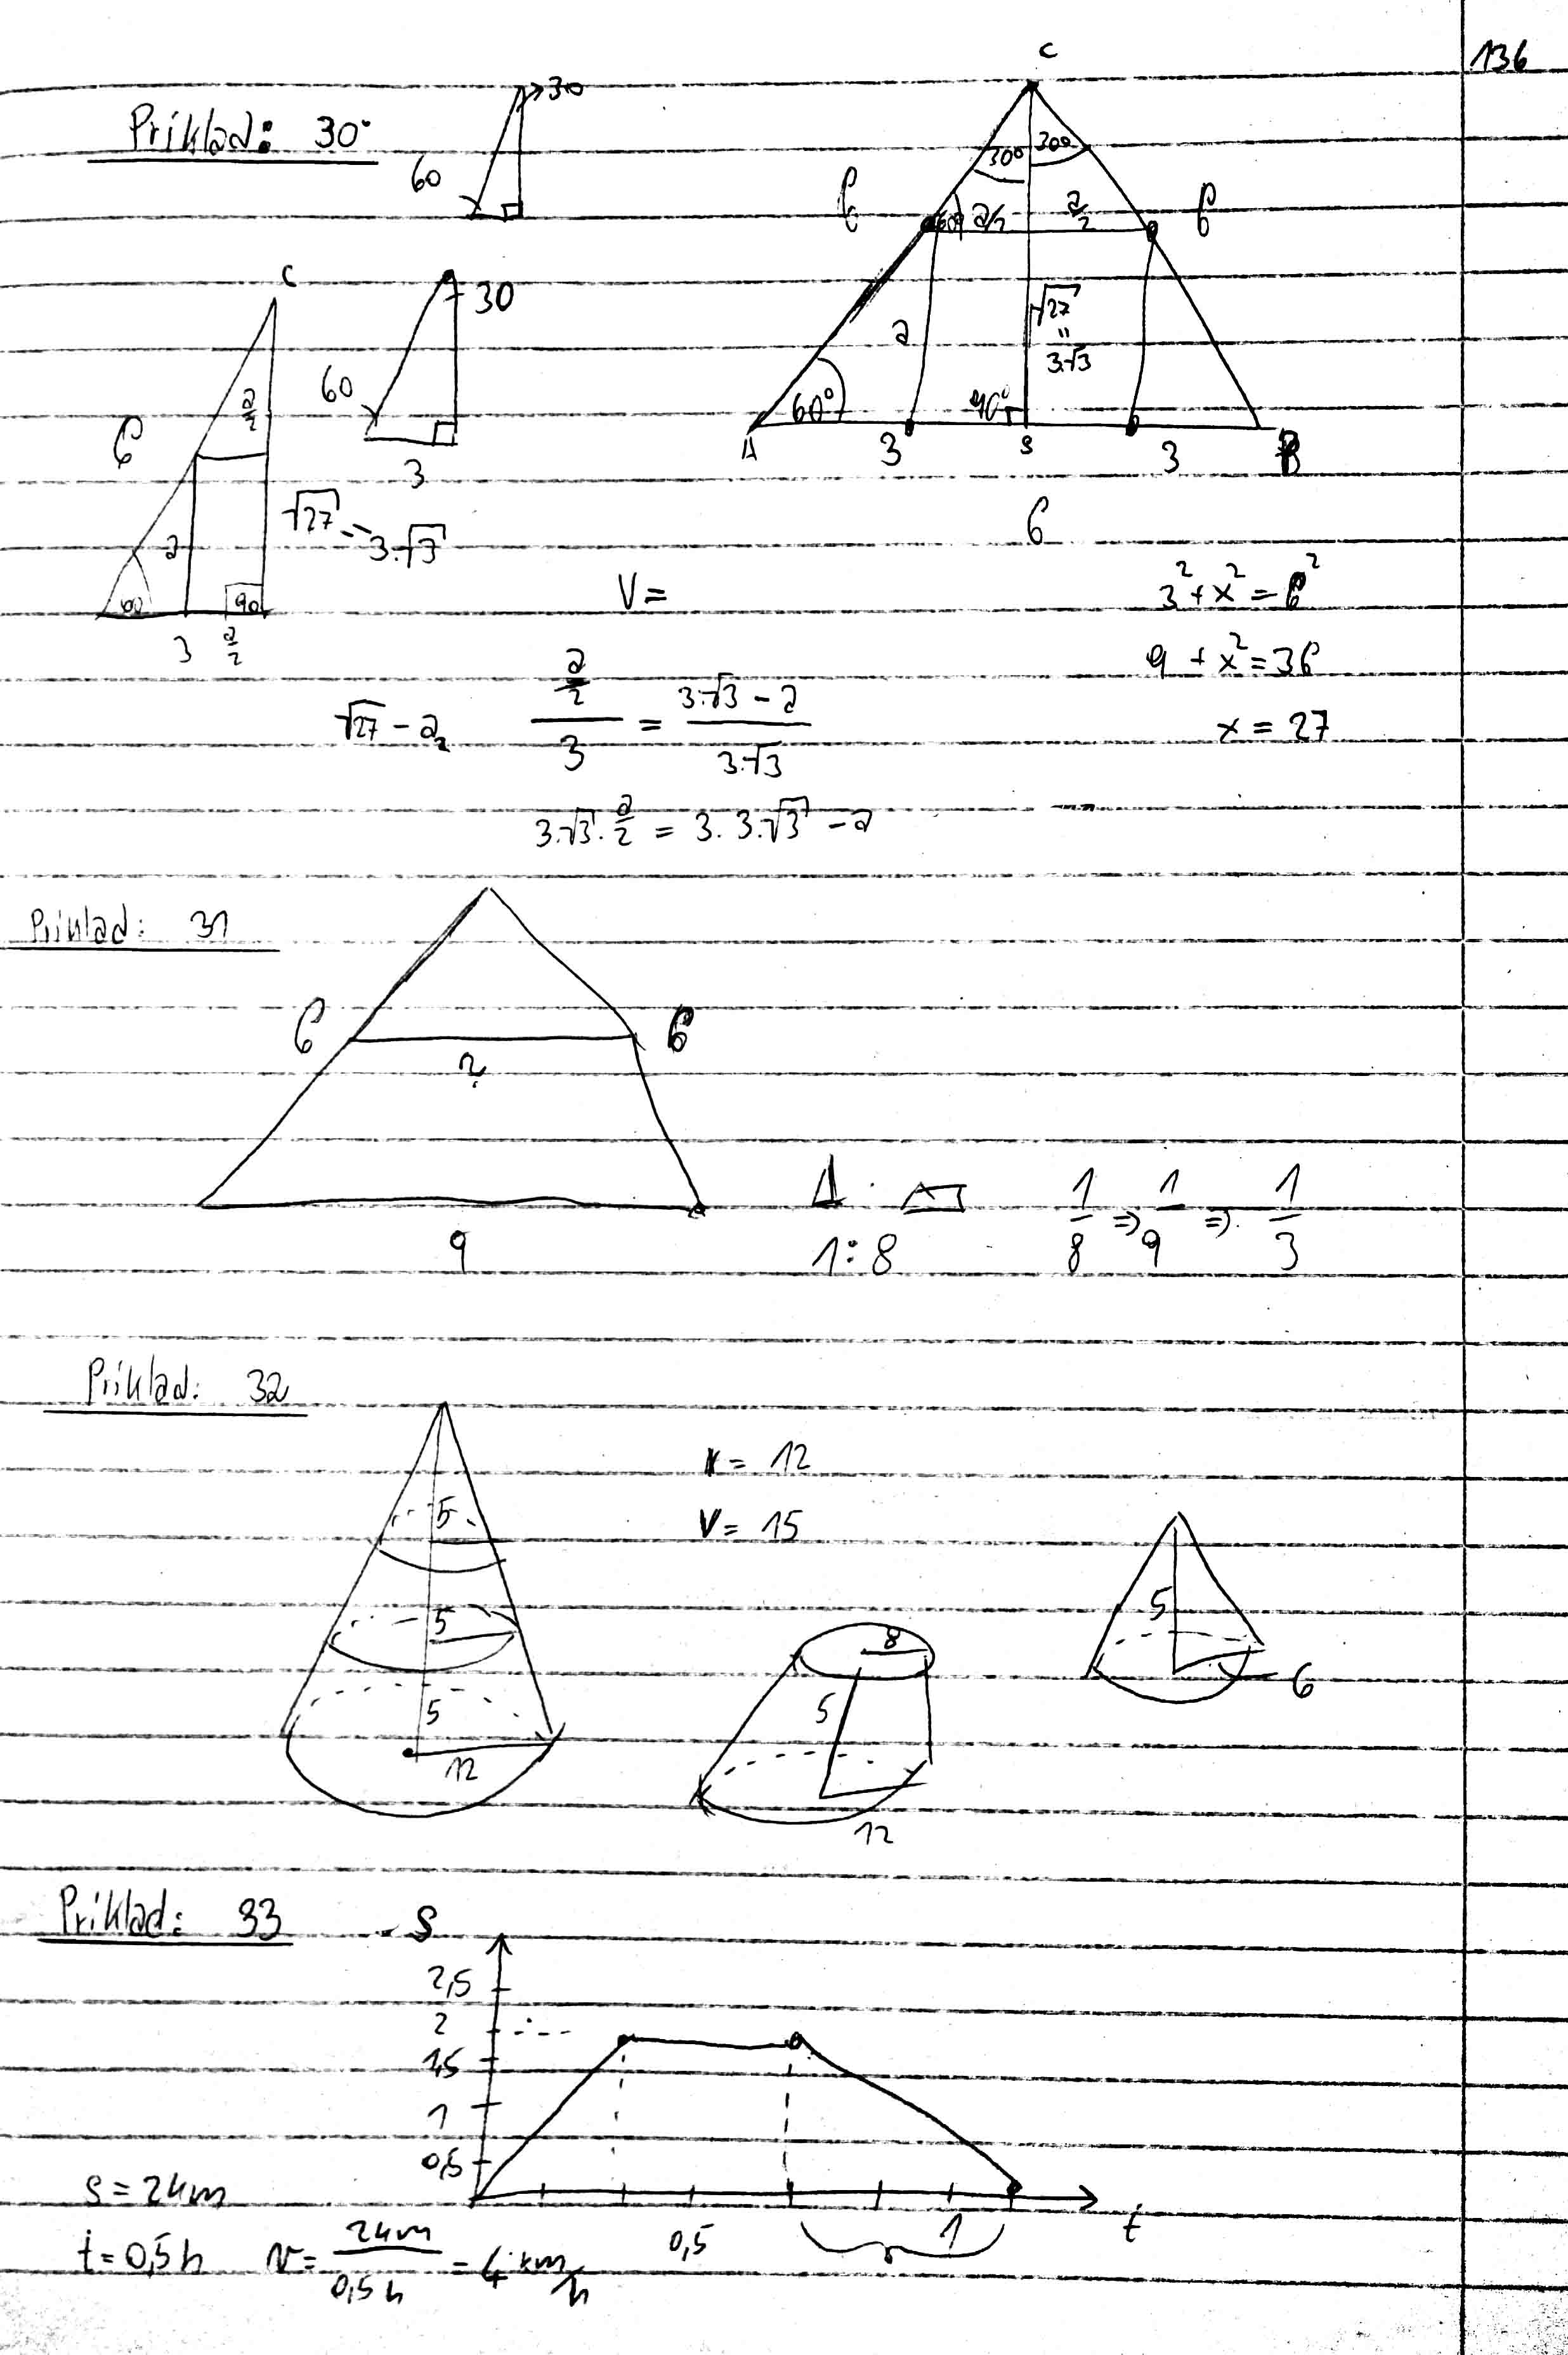 136
Príklad: 30°
30
60
C
30° 30°
6 60° a/2 a/2 6
a √27
"
3.√3
60° 90°
A 3 S 3 B
6
C
a/2
6
a
60 90
3 a/2
√27 = 3.√3
30
60
3
V=
3² + x² = 6²
9 + x² = 36
x = 27
√27 - a₂ a/2 / 3 = 3.√3 - a / 3.√3
3.√3 . a/2 = 3. 3.√3 - a
Príklad: 31
6 6
?
9
1:8 1/8 => 1/9 => 1/3
Príklad: 32
5
5
5
12
r = 12
V = 15
8
5
12
5
6
Príklad: 33
S
2,5
2
1,5
1
0,5
0,5 1 t
s = 2km
t = 0,5h v = 2km / 0,5h = 4 km/h